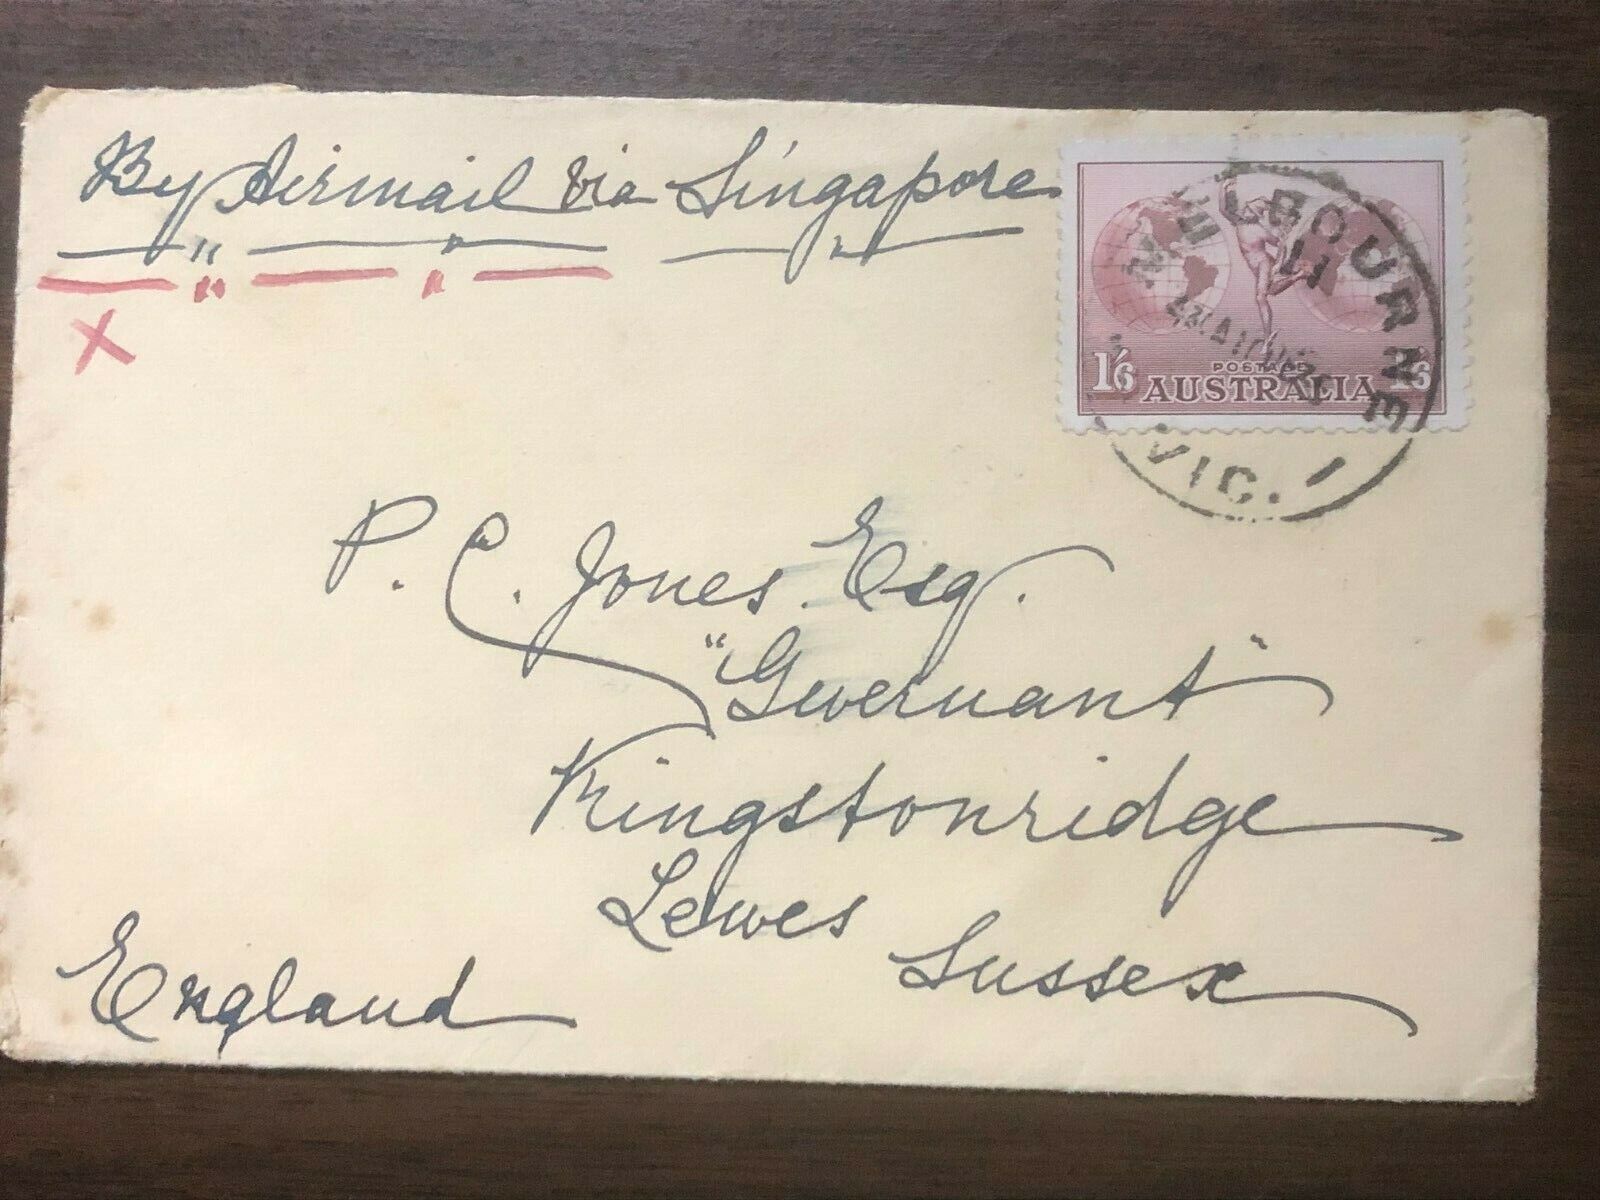 By Airmail via Singapore
X
MELBOURNE
11
VIC. 1
POSTAGE
1/6 AUSTRALIA 1/6
P. C. Jones Esq.
"Gwernant"
Kingstonridge
Lewes
Sussex
England